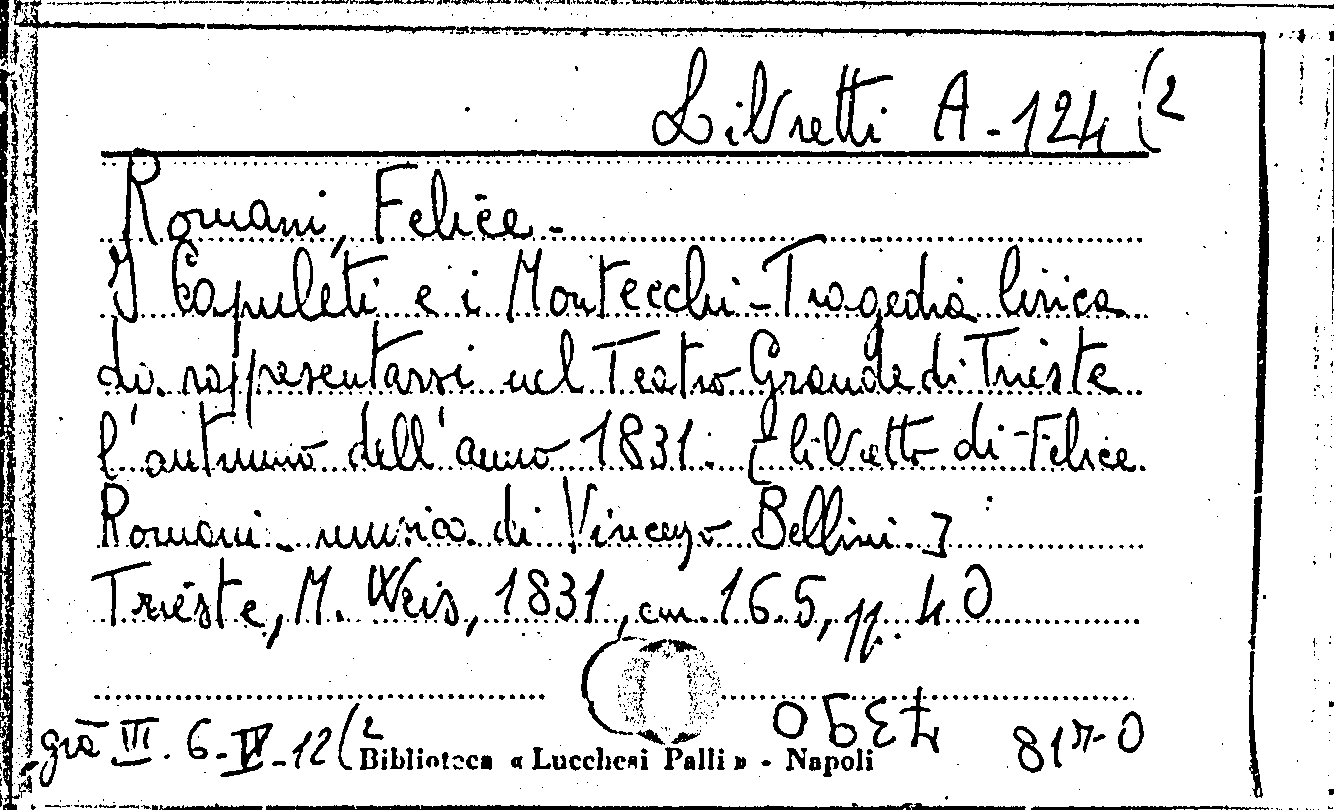 Libretti A-124 (2
Romani, Felice.-
I Capuleti e i Montecchi-Tragedia lirica
da rappresentarsi nel Teatro Grande di Trieste
l'autunno dell'anno 1831. [libretto di Felice
Romani - musica di Vincenzo Bellini]
Trieste, M. Weis, 1831, cm. 16.5, pp. 40
già III. 6-IV-12(2
Biblioteca « Lucchesi Palli » - Napoli